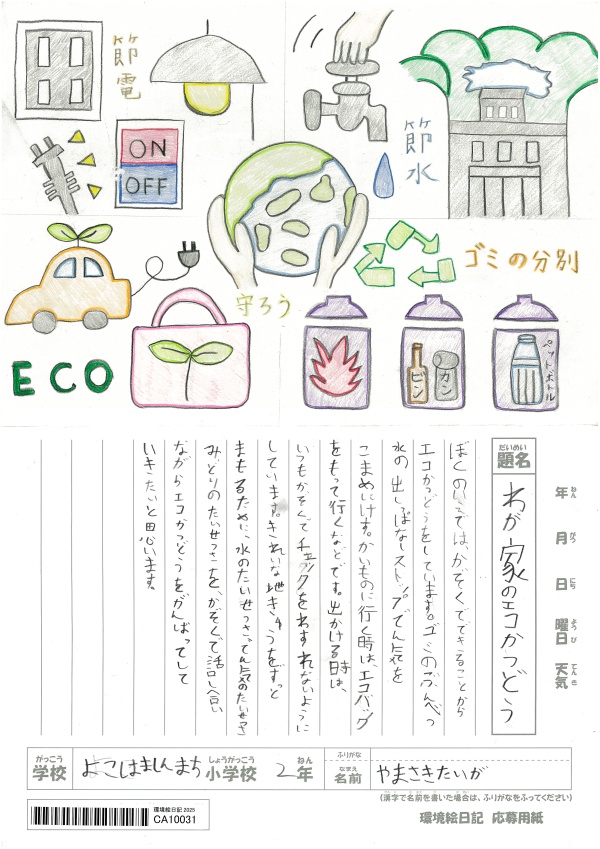 節電
ON
OFF
節水
ゴミの分別
守ろう
ECO
ビン
カン
ペットボトル
だいめい
題名
わが家のエコかつどう
ねん
年
がつ
月
にち
日
ようび
曜日
てんき
天気
ぼくのいえでは、かぞくでできることから
エコかつどうをしています。ゴミのぶんべつ
水の出しっぱなしストップでん気を
こまめにけす。かいものに行く時は、エコバッグ
をもって行くなどです。出かける時は、
いつもかぞくでチェックをわすれないように
しています。きれいな地きゅうをずっと
まもるために、水のたいせつさでん気のたいせつさ
みどりのたいせつさを、かぞくで話し合い
ながらエコかつどうをがんばってして
いきたいと思います。
がっこう
学校
よこはましんまち
しょうがっこう
小学校
2
ねん
年
ふりがな
なまえ
名前
やまさきたいが
(漢字で名前を書いた場合は、ふりがなをふってください)
環境絵日記 2025
CA10031
環境絵日記 応募用紙